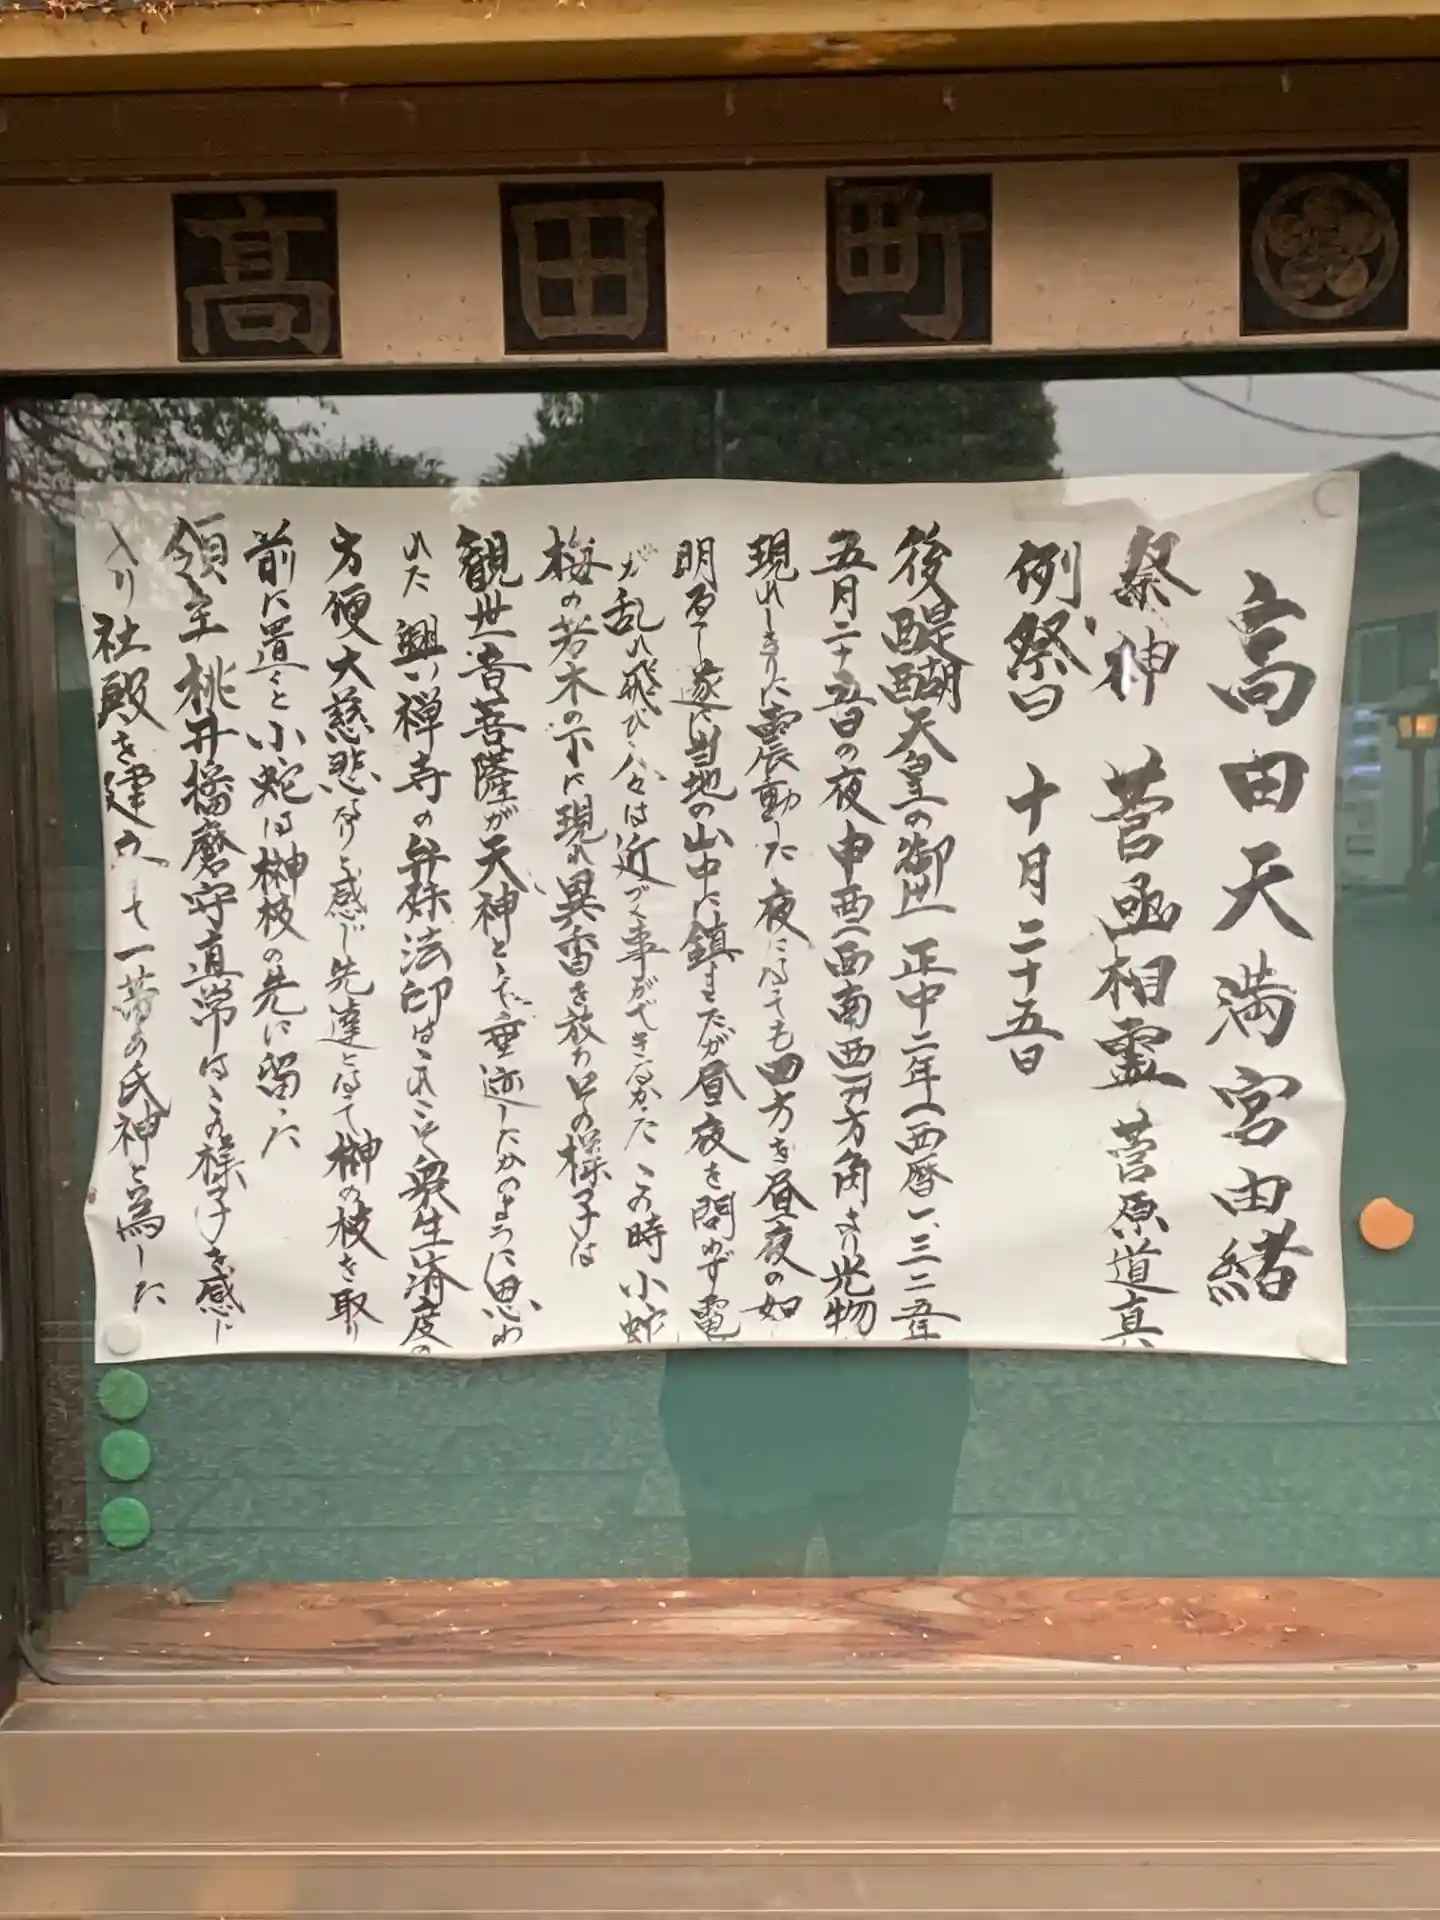 高田町
高田天満宮由緒
祭神 菅丞相霊 菅原道真
例祭日 十月二十五日
後醍醐天皇の御世 正中二年(西暦一、三二五年
五月二十五日の夜申酉(西南西)方角より光物
現れしきりに震動した夜になっても四方を昼夜の如
明るし遂に当地の山中に鎮まったが昼夜を問わず電
が乱れ飛び人々は近づく事ができなかった この時小蛇
梅の若木の下に現れ異香を放ちその様子は
観世音菩薩が天神となって垂迹したかのように思わ
れた 興い禅寺の弁弥法印はこれこそ衆生済度の
方便大慈悲なりと感じ先達となって榊の枝を取り
前に置くと小蛇は榊枝の先に留った
領主桃井播磨守直常はこの様子を感じ
入り社殿を建立して一帯の氏神と為した